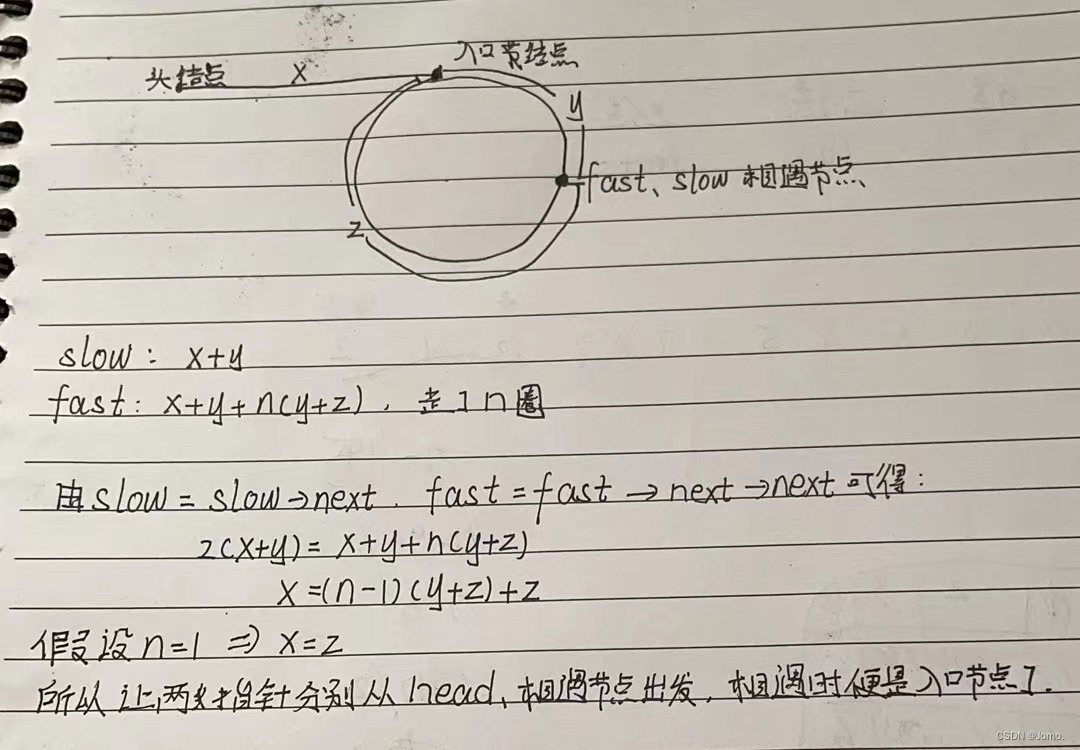 头结点 x 入口节结点
y
fast、slow 相遇节点
z
slow: x+y
fast: x+y+n(y+z), 走了n圈
由slow=slow→next. fast=fast→next→next可得:
2(x+y)= x+y+n(y+z)
x=(n-1)(y+z)+z
假设n=1 => x=z
所以让两个指针分别从head、相遇节点出发, 相遇时便是入口节点了.
CSDN @Jomo.